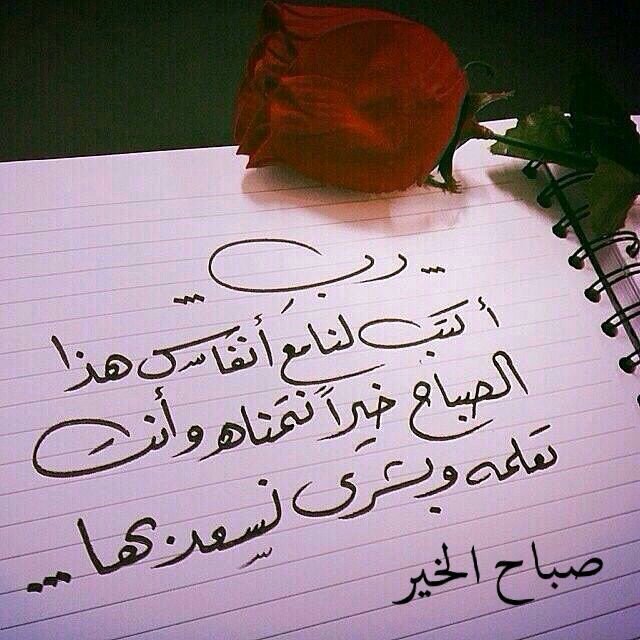 ... رب ...
أكتب لنا مع أنفاس هذا
الصباح خيراً نتمناه وأنت
تعلمه وبشرى نسعد بها ...
صباح الخير